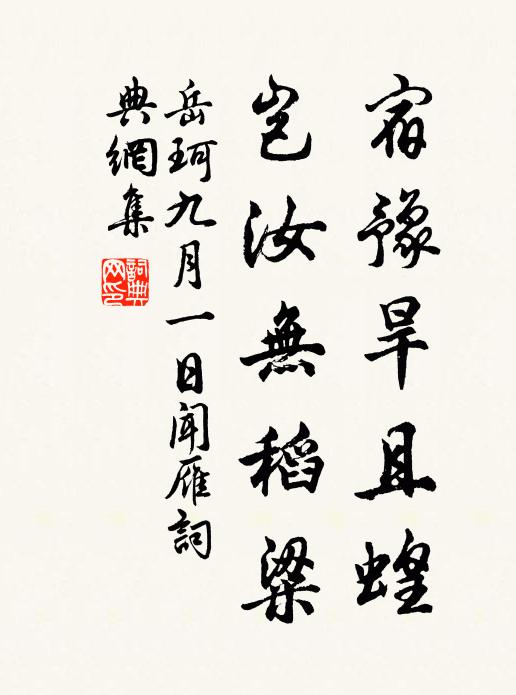 宿豫旱且蝗
豈汝無稻粱
岳珂九月一日聞雁詞
典網集
詞典
网印